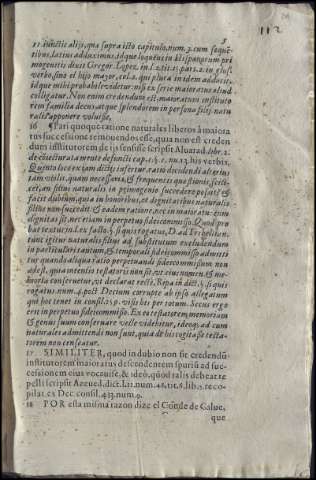 112
5
11. iunctis alijs, quæ supra isto capitulo, num. 3. cum seque͂
tibus, latius adduximus, idque loquens in Hispanorum pri
mogenitis dixit Gregor. Lopez. in l. 2. tit. 15. part. 2. in glos.
verbo, sino el hijo mayor, col. 2. qui plura in idem adducit,
idque mihi probabile videtur, nisi ex serie maioratus aliud
colligatur. Non enim credendum est, maioratum instituto
rem familiæ decus, atque splendorem in persona filij natu
ralis apponere voluisse.
16 ¶ Pari quoque ratione naturales liberos à maiora
tus successione remouendos esse, quia non est creden
dum institutorem de ijs sensisse scripsit Aluarad. libr. 2.
de coniectura mente defuncti cap. 1. §. 1. nu. 13. his verbis.
Quinto loco ex iam dictis infertur, ratio decidendi alterius
tam vtilis, quam necessariæ, & frequentis quæstionis, scili-
cet, an filius naturalis in primogenio succedere possit, &
facit dubium, quia in honoribus, et dignitatibus naturalis
filius non succedit, & eadem ratione, nec in maioratu: cum
dignitas sit, nec etiam in perpetuo fideicommisso. Quod pro
bat textus in l. ex facto, §. si quis rogatus, D. ad Trebellian.
tunc igitur naturalis filius ad substitutum excludendum
in particulari causa, & temporali fideicommisso admitti
tur quando aliqua ratio perpetuandi fideicommissum non
adest, quia intentio testatoris non sit, vt eius nomen, & me
moria conseruetur, vt declarat recte, Ripa in dict. §. si quis
rogatus, num. 4. post Decium corrupte ab ipso allegatum
qui hoc tenet in consil. 259. visis his per totum. Secus ergo
erit in perpetuo fideicommisso. Ex eo testatorem, memoriam
& genus suum conseruare velle videbitur, ideoque ad eum
naturales admittendi non sunt, quia de his cogitasse testa-
torem non censeatur.
17. SIMILITER, quod in dubio non sit credendũ
institutorem maioratus descendentem spurium ad suc-
cessionem eius vocauisse, & ideò, quòd talis debeat re
pelli scripsit Azeued. dict. l. 11. num. 48. tit. 8. lib. 5. reco-
pilat. ex Dec. consil. 433. num. 9.
18 POR esta misma razon dize el Conde de Galue,
que